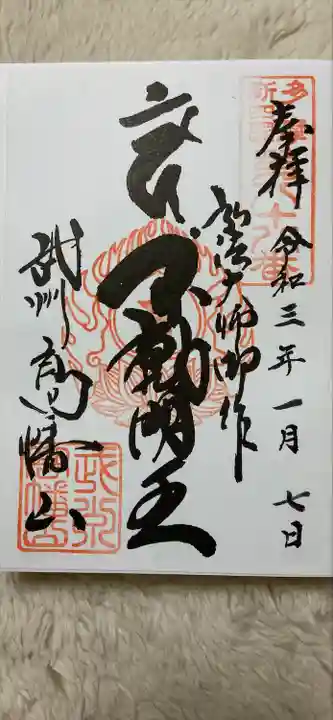 奉拝
令和三年一月七日
弘法大師御作
交通
不動明王
武州高幡山
多摩
新四国
八十八番
武州
高幡山